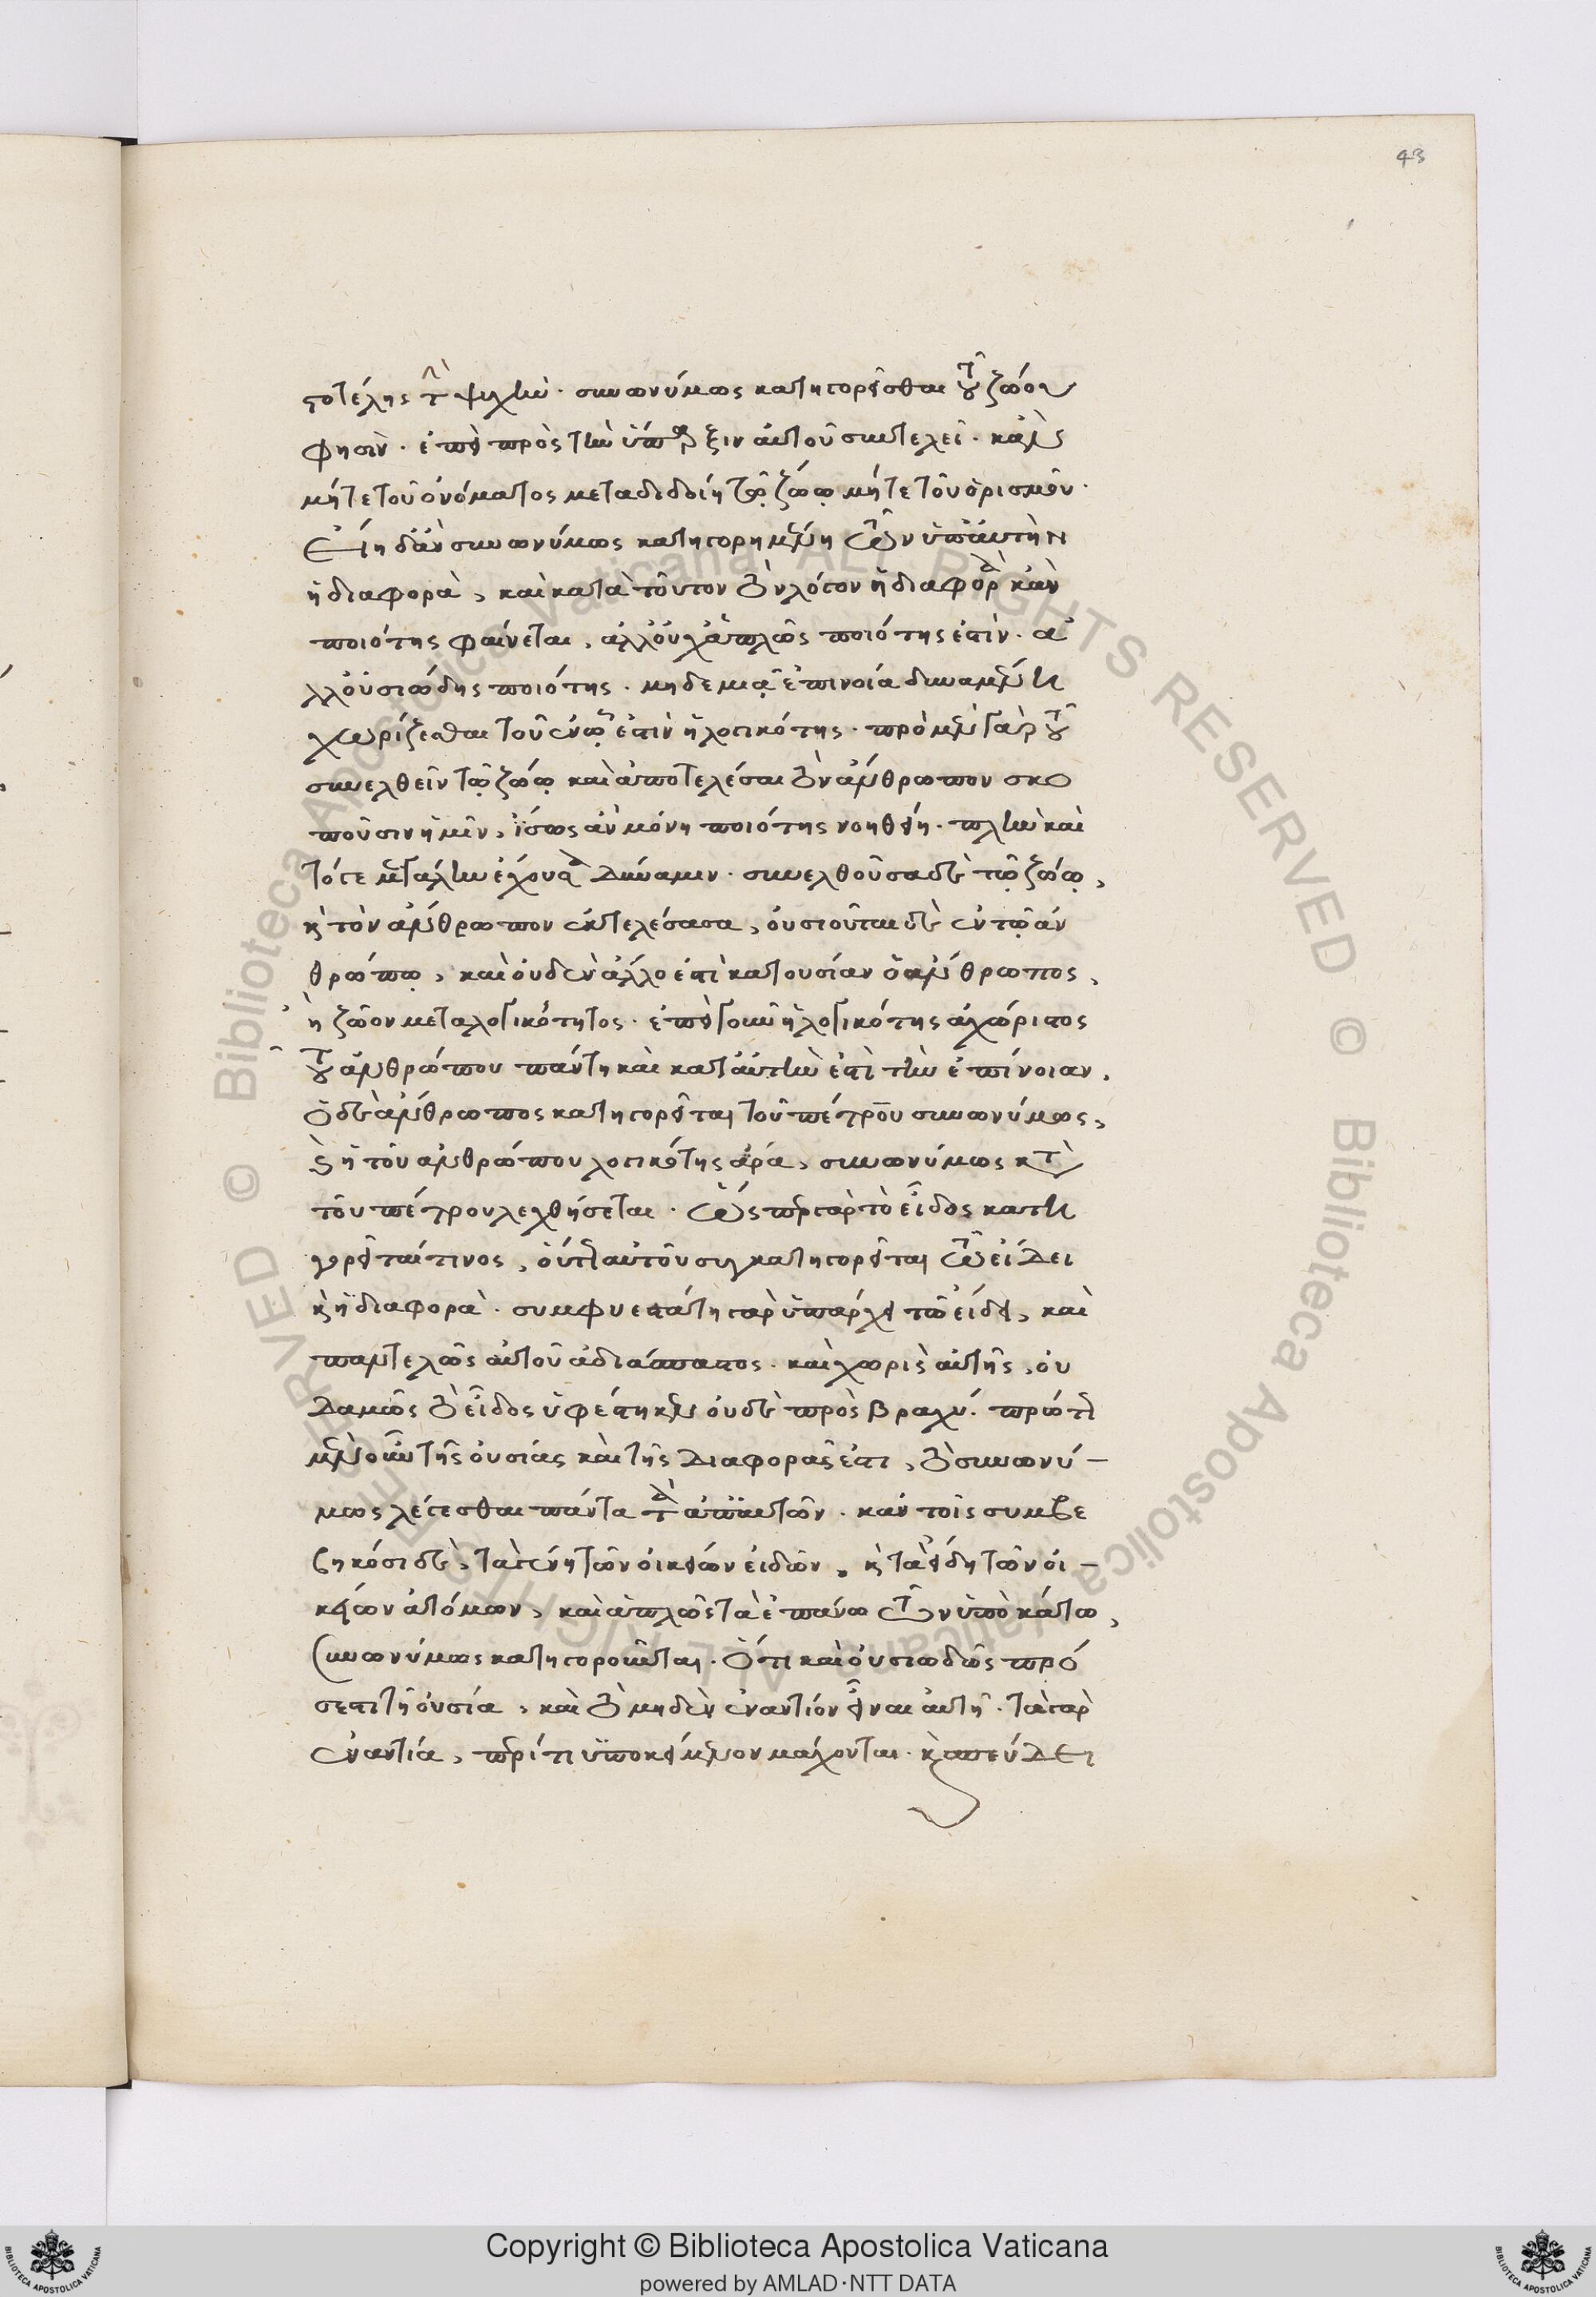 43
στοτέλης τὴν ψυχὴν. συνωνύμως κατηγορεῖσθαι τοῦ ζώου
φησὶν. ἐπεὶ πρὸς τὴν ὕπαρξιν αὐτοῦ συντελεῖ. κἂν
μήτε τοῦ ὀνόματος μεταδιδοίη τῷ ζώῳ μήτε τοῦ ὁρισμοῦ.
Εἴη δ' ἂν συνωνύμως κατηγορημένη τῶν ὑπ' αὐτὴν
ἡ διαφορὰ, καὶ κατὰ τοῦτον τὸν λόγον ἡ διαφορὰ κἂν
ποιότης φαίνεται, ἀλλ' οὐχ ἁπλῶς ποιότης ἐστίν. ἀ
λλ' οὐσιώδης ποιότης. μηδεμιᾷ ἐπινοίᾳ δυναμένη
χωρίζεσθαι τοῦ ἐν ᾧ ἐστὶν ἡ λογικότης. πρὸ μὲν γὰρ τοῦ
συνελθεῖν τῷ ζώῳ καὶ ἀποτελέσαι τὸν ἄνθρωπον σκο
ποῦσιν ἡμῖν, ἴσως ἂν μόνη ποιότης νοηθείη. πλὴν καὶ
τότε μεγάλην ἔχουσα δύναμιν. συνελθοῦσα δὲ τῷ ζώῳ,
καὶ τὸν ἄνθρωπον ἐκτελέσασα, οὐσιοῦται δὲ ἐν τῷ ἀν
θρώπῳ, καὶ οὐδὲν ἄλλο ἐστὶ κατ' οὐσίαν ὁ ἄνθρωπος,
ἢ ζῶον μετὰ λογικότητος. ἐπεὶ γοῦν ἡ λογικότης ἀχώριστος
τοῦ ἀνθρώπου πάντη καὶ κατ' αὐτὴν ἐστὶ τὴν ἐπίνοιαν,
ὁ δὲ ἄνθρωπος κατηγορεῖται τοῦ πέτρου συνωνύμως,
καὶ ἡ τοῦ ἀνθρώπου λογικότης ἄρα, συνωνύμως κατὰ
τοῦ πέτρου λεχθήσεται. ὥσπερ γὰρ τὸ εἶδος κατη
γορεῖταί τινος, οὕτως αὐτοῦ συγκατηγορεῖται τῷ εἴδει
καὶ ἡ διαφορὰ. συμφυεστάτη γὰρ ὑπάρχει τῷ εἴδει, καὶ
παντελῶς αὐτοῦ ἀδιάσπαστος. καὶ χωρὶς αὐτῆς, οὐ
δαμῶς τὸ εἶδος ὑφέστηκεν οὐδὲ πρὸς βραχύ. πρώτως
μὲν οὖν τῆς οὐσίας καὶ τῆς διαφορᾶς ἐστι, τὸ συνωνύ-
μως λέγεσθαι πάντα τὰ ἀπ' αὐτῶν. κἂν τοῖς συμβε
βηκόσι δὲ, τὰ γένη τῶν οἰκείων εἰδῶν, καὶ τὰ εἴδη τῶν οἰ-
κείων ἀτόμων, καὶ ἁπλῶς τὰ ἐπάνω τῶν ὑποκάτω,
συνωνύμως κατηγοροῦνται. Ὅτι καὶ οὐσιωδῶς πρό
σεστι τῇ οὐσίᾳ, καὶ τὸ μηδὲν ἐναντίον εἶναι αὐτῇ. τὰ γὰρ
ἐναντία, περί τι ὑποκείμενον μάχονται. καὶ σπεύδει